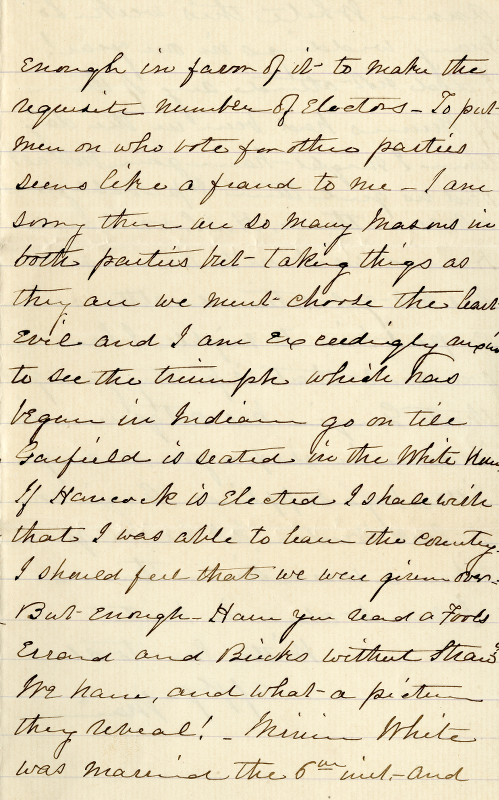 Enough in favor of it to make the
requisite number of Electors - To put
men on who vote for other parties
seems like a fraud to me - I am
sorry there are so many Masons in
both parties but taking things as
they are we must choose the least
Evil and I am Exceedingly anxious
to see the triumph which has
begun in Indiana go on till
Garfield is seated in the White House
If Hancock is Elected I shall wish
that I was able to leave the country.
I should feel that we were given over -
But Enough - Have you read a Fools
Errand and Bricks without Straw?
We have, and what a picture
they reveal! - Minnie White
was married the 6th inst - and